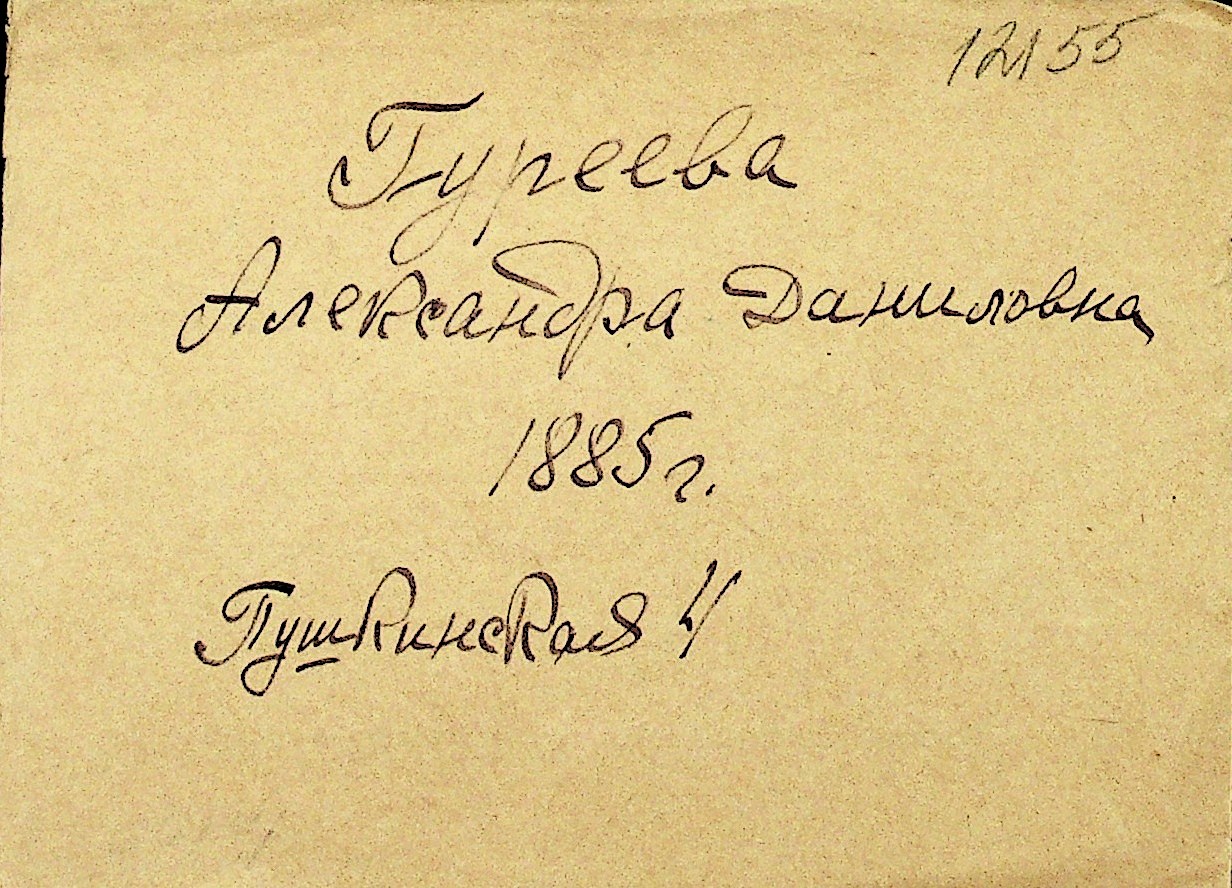 12155
Гуреева
Александра Даниловна
1885г.
Пушкинская 4